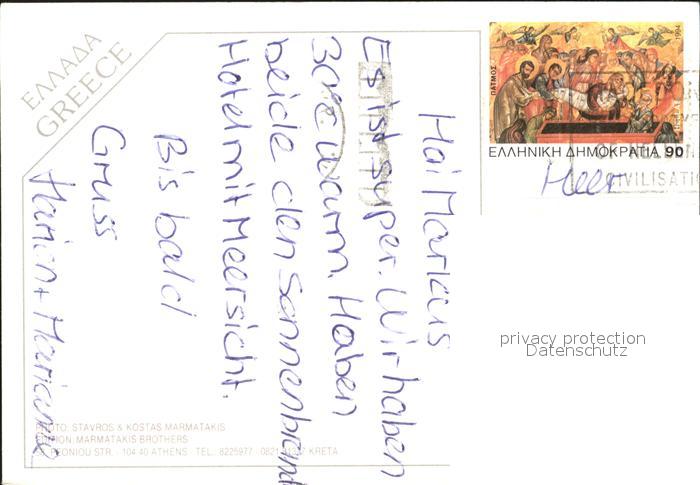 ΕΛΛΑΔΑ
GREECE
Hai Markus
Es ist super. Wir haben
30°C warm. Haben
beide den Sonnenbrand
Hotel mit Meersicht.
Bis bald
Gruss
Marion + Marianne
ΠΑΤΜΟΣ
1994
ΕΛΛΗΝΙΚΗ ΔΗΜΟΚΡΑΤΙΑ 90
Herr
privacy protection
Datenschutz
PHOTO: STAVROS & KOSTAS MARMATAKIS
EDITION: MARMATAKIS BROTHERS
STR. · 104 40 ATHENS · TEL.: 8225977 - KRETA